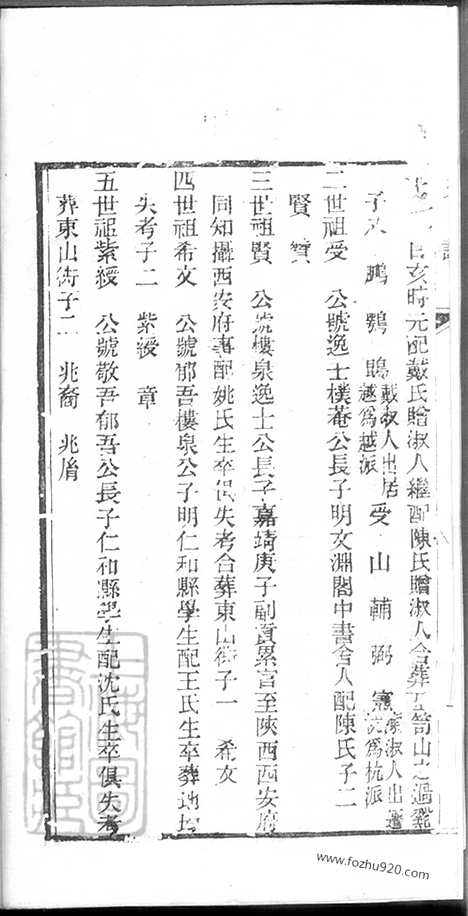 日亥時元配戴氏贈淑人繼配陳氏贈淑人合葬雲笥山之過飛
子八 鵬 鶚 鵾 戴淑人出居越為越派 受 山 輔 弼 憲 陳淑人出遷杭為杭派
二世祖受 公號逸士樸菴公長子明文淵閣中書舍人配陳氏子二
賢 質
三世祖賢 公號樓泉逸士公長子嘉靖庚子副貢累官至陝西西安府
同知攝西安府事配姚氏生卒俱失考合葬東山街子一 希文
四世祖希文 公號郁吾樓泉公子明仁和縣學生配王氏生卒葬地均
失考子二 紫綬 章
五世祖紫綬 公號敬吾郁吾公長子仁和縣學生配沈氏生卒俱失考
葬東山街子二 兆裔 兆脣
上海圖書館藏
www.fozhu920.com